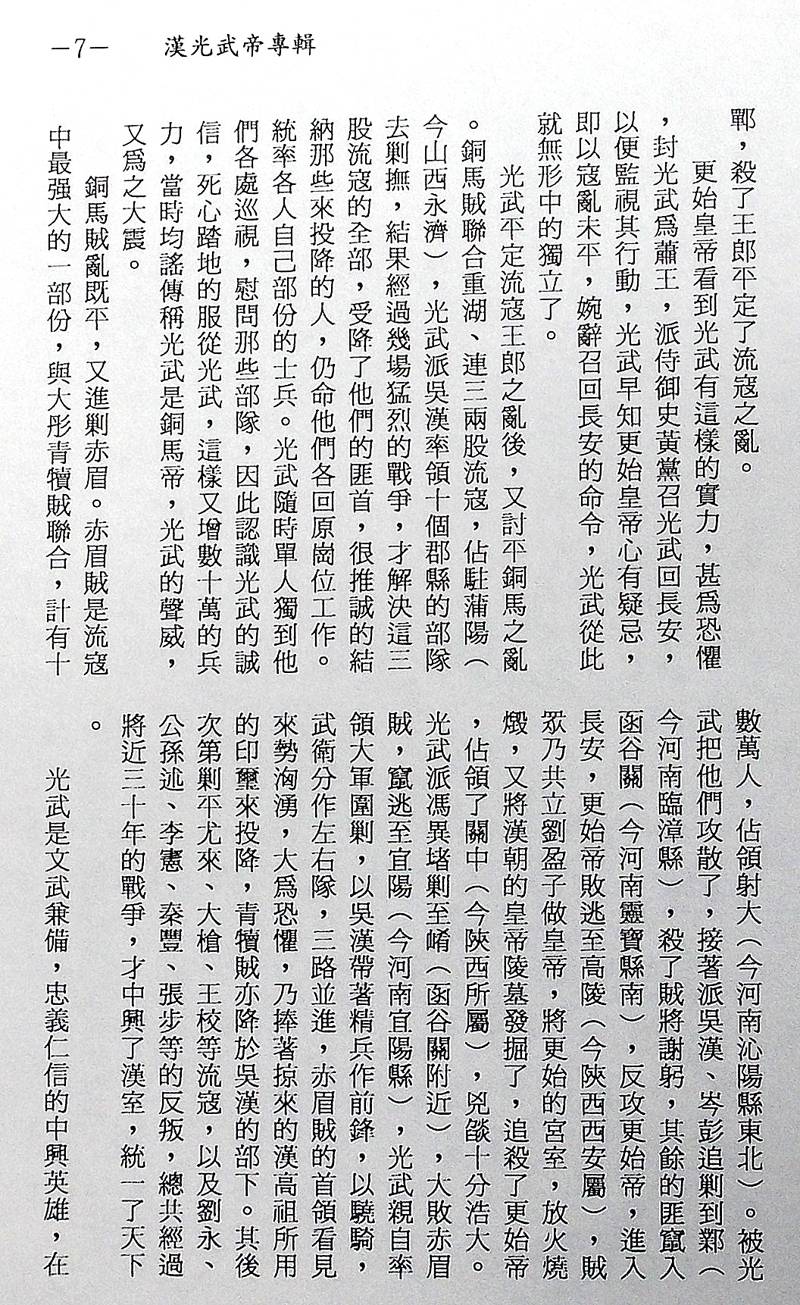 －7－ 漢光武帝專輯
鄲，殺了王郎平定了流寇之亂。
更始皇帝看到光武有這樣的實力，甚爲恐懼
，封光武爲蕭王，派侍御史黃黨召光武回長安，
以便監視其行動，光武早知更始皇帝心有疑忌，
即以寇亂未平，婉辭召回長安的命令，光武從此
就無形中的獨立了。
光武平定流寇王郎之亂後，又討平銅馬之亂
。銅馬賊聯合重湖、連三兩股流寇，佔駐蒲陽（
今山西永濟），光武派吳漢率領十個郡縣的部隊
去剿撫，結果經過幾場猛烈的戰爭，才解決這三
股流寇的全部，受降了他們的匪首，很推誠的結
納那些來投降的人，仍命他們各回原崗位工作。
統率各人自己部份的士兵。光武隨時單人獨到他
們各處巡視，慰問那些部隊，因此認識光武的誠
信，死心踏地的服從光武，這樣又增數十萬的兵
力，當時均謠傳稱光武是銅馬帝，光武的聲威，
又爲之大震。
銅馬賊亂既平，又進剿赤眉。赤眉賊是流寇
中最强大的一部份，與大彤青犢賊聯合，計有十
數萬人，佔領射大（今河南沁陽縣東北）。被光
武把他們攻散了，接著派吳漢、岑彭追剿到鄴（
今河南臨漳縣），殺了賊將謝躬，其餘的匪竄入
函谷關（今河南靈寶縣南），反攻更始帝，進入
長安，更始帝敗逃至高陵（今陝西西安屬），賊
眾乃共立劉盈子做皇帝，將更始的宮室，放火燒
燬，又將漢朝的皇帝陵墓發掘了，追殺了更始帝
，佔領了關中（今陝西所屬），兇燄十分浩大。
光武派馮異堵剿至崤（函谷關附近），大敗赤眉
賊，竄逃至宜陽（今河南宜陽縣），光武親自率
領大軍圍剿，以吳漢帶著精兵作前鋒，以驍騎，
武衛分作左右隊，三路並進，赤眉賊的首領看見
來勢洶湧，大爲恐懼，乃捧著掠來的漢高祖所用
的印璽來投降，青犢賊亦降於吳漢的部下。其後
次第剿平尤來、大槍、王校等流寇，以及劉永、
公孫述、李憲、秦豐、張步等的反叛，總共經過
將近三十年的戰爭，才中興了漢室，統一了天下
。
光武是文武兼備，忠義仁信的中興英雄，在